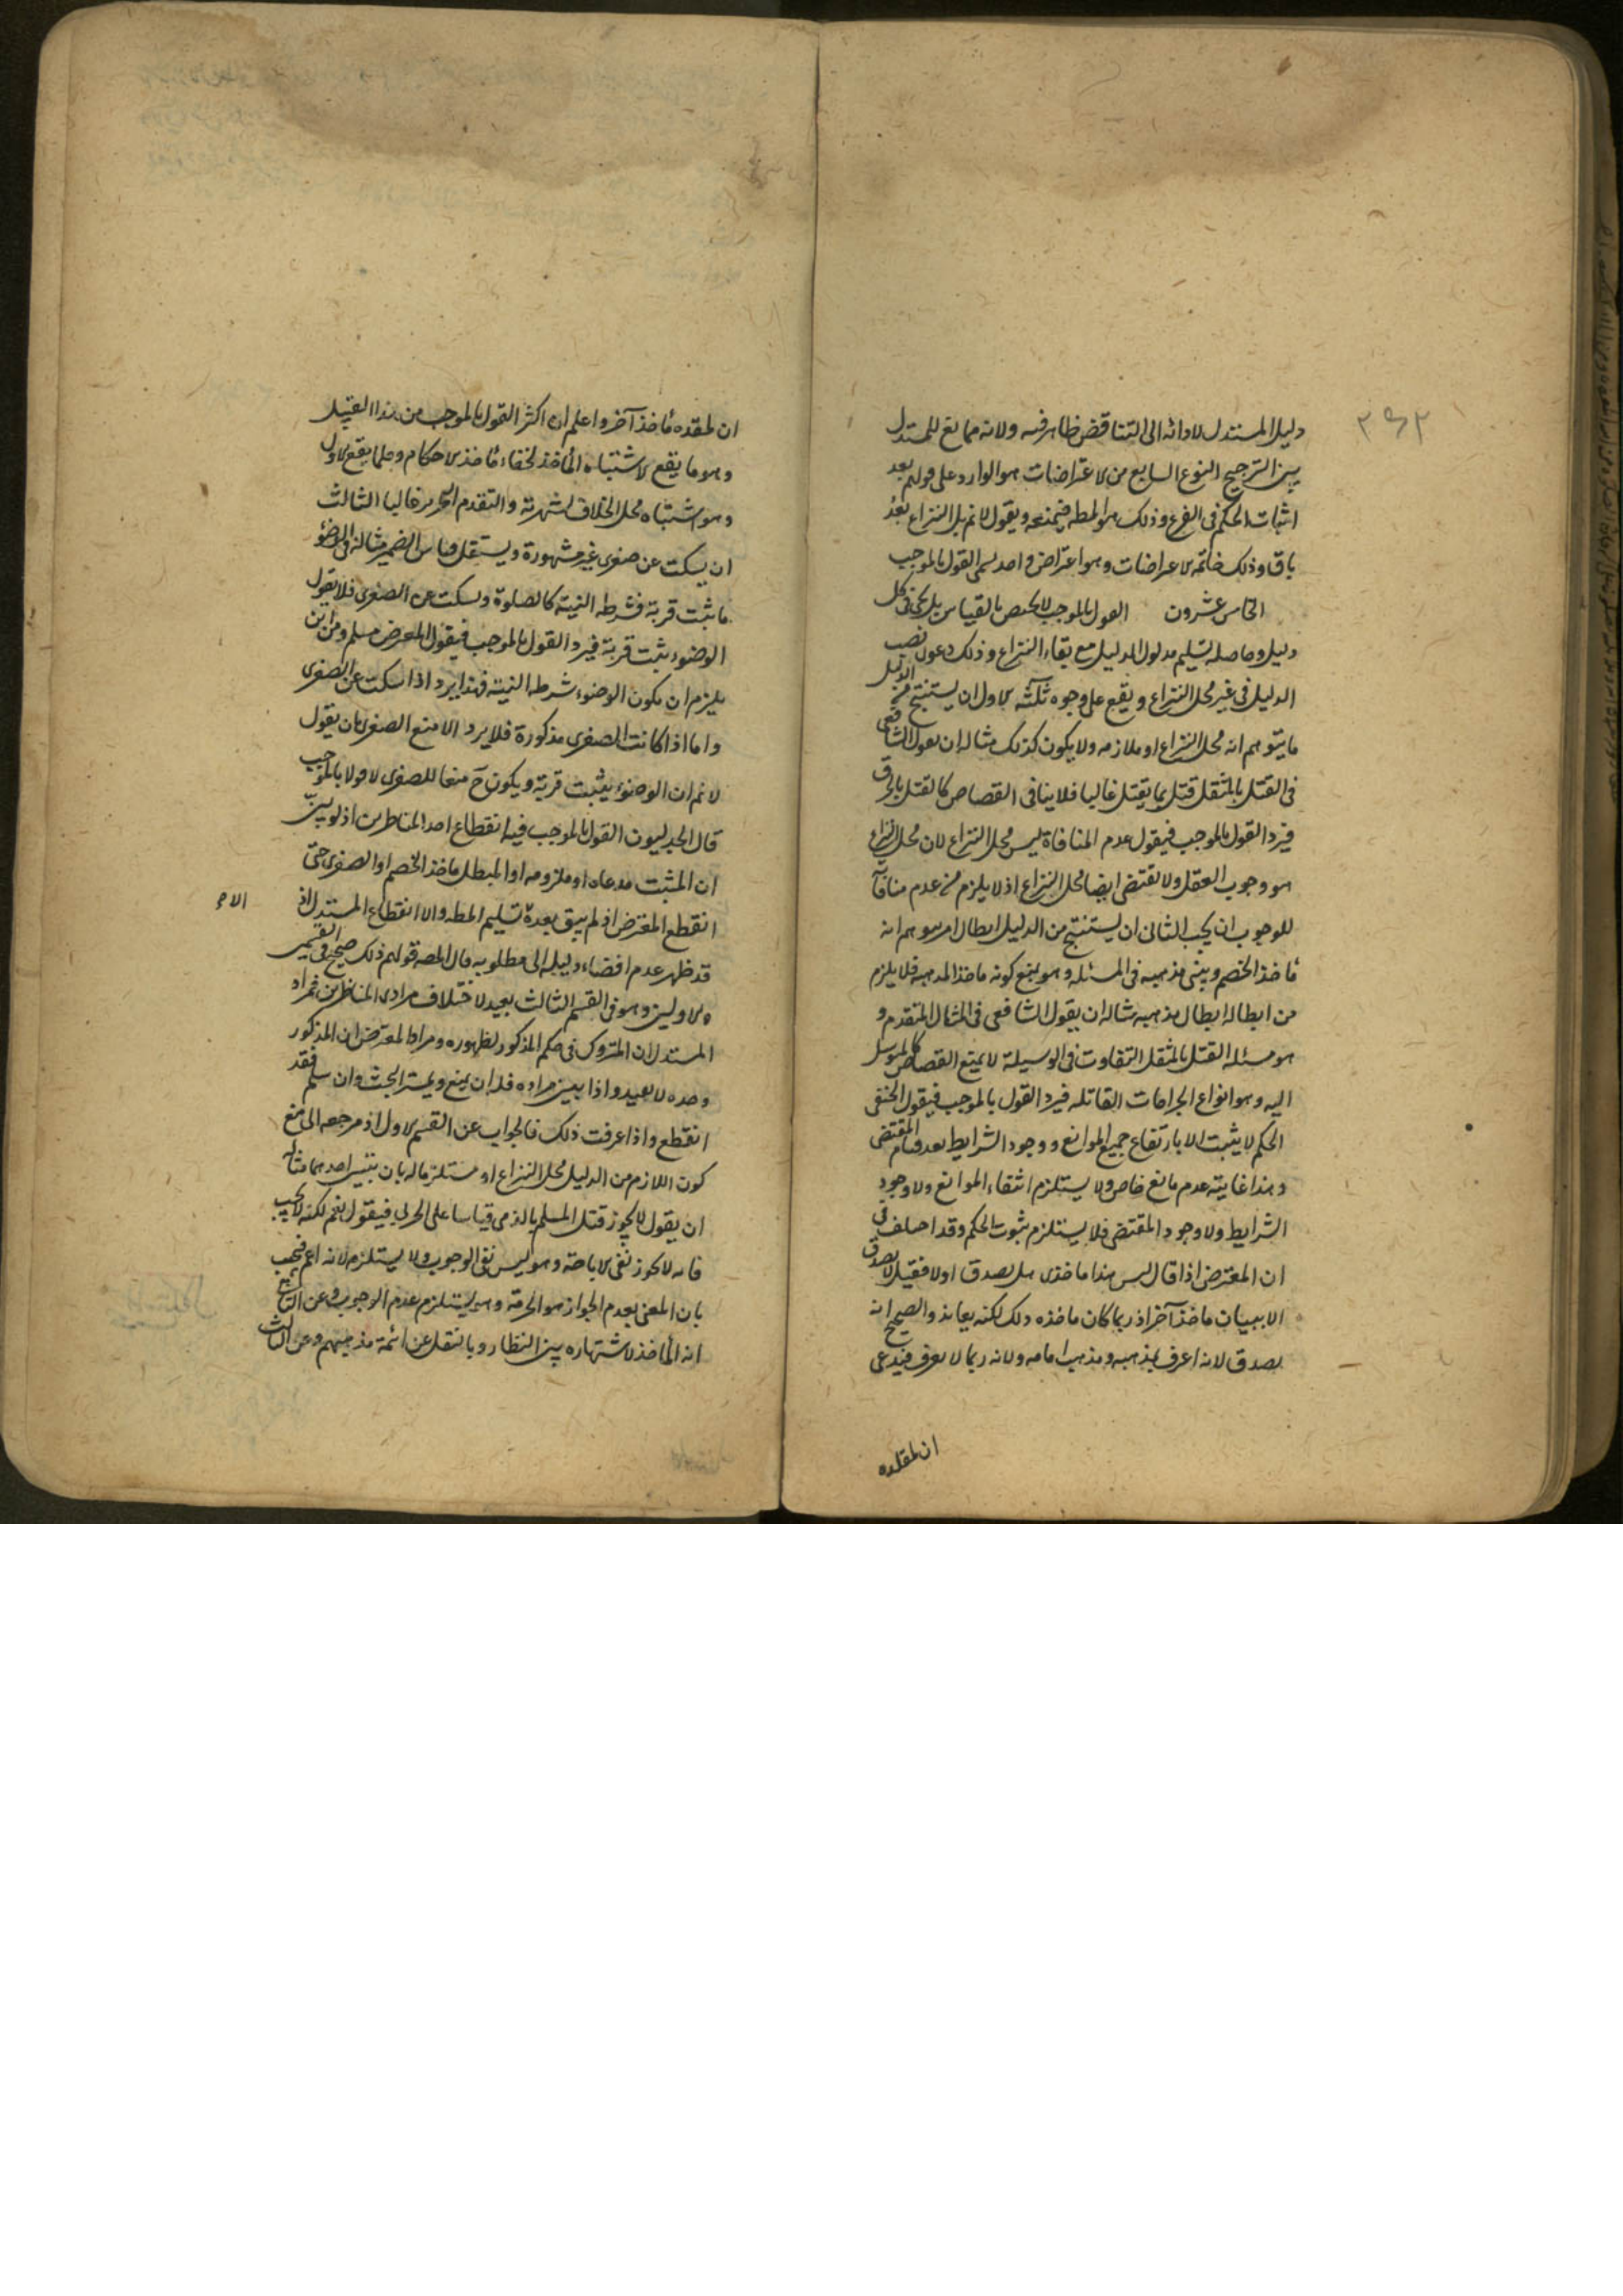 ٢٩٢
دليل المستدل لادائه الى التناقض ظاهر فيه ولانه مما نع للمستدل
بين الترجيح النوع السابع من الاعتراضات هو الوارد على قولهم بعد
اثبات الحكم فى الفرع وذلك هو المطه فيمنعه ويقول لانم بل النزاع بعدُ
باق وذلك خاتمه الاعراضات وهو اعتراض واحد يسمى القول بالموجب
الخامس عشرون القول بالموجب لا يختص بالقياس بل يجئ فى كل
دليل وحاصله تسليم مدلول الدليل مع بقاء النزاع وذلك دعوى نصب
الدليل فى غير محل النزاع ويقع على وجوه ثلثه الاول ان يستنتج من الدليل
ما يتوهم انه محل النزاع او ملازمه ولا يكون كذلك مثاله ان يقول الشافعى
فى القتل بالمثقل قتل بما يقتل غالبا فلا ينافى القصاص كالقتل بالحرق
فيرد القول بالموجب فيقول عدم المنافاة ليس محل النزاع لان محل النزاع
هو وجوب القتل ولا يقتضى ايضا محل النزاع اذ لا يلزم من عدم منافاة
للوجوب ان يجب الثانى ان يستنتج من الدليل ابطال امر يتوهم انه
مأخذ الخصم ويبنى مذهبه فى المسئله وهو يمنع كونه ماخذ المذهبه فلا يلزم
من ابطاله ابطال مذهبه مثاله ان يقول الشافعى فى المثال المتقدم و
هو مسئله القتل بالمثقل التفاوت فى الوسيلة لا يمنع القصاص كالمتوسل
اليه وهو انواع الجراحات القاتله فيرد القول بالموجب فيقول الحنفى
الحكم لا يثبت الا بارتفاع جميع الموانع ووجود الشرايط بعد قيام المقتضى
وهذا غايته عدم مانع خاص ولا يستلزم انتفاء الموانع ولا وجود
الشرايط ولا وجود المقتضى فلا يستلزم ثبوت الحكم وقد اختلف فى
ان المعترض اذا قال ليس هذا ماخذى هل يصدق اولا فقيل لا يصدق
الا ببيان ماخذ آخر اذ ربما كان ماخذه ذلك لكنه يعاند والصحيح انه
يصدق لانه اعرف بمذهبه ومذهب امامه ولانه ربما لا يعرف فيدعى
ان لمقلده
ان لمقلده مأخذ آخر واعلم ان اكثر القول بالموجب من هذا القبيل
وهو ما يقع لاشتباه المأخذ لخفاء مأخذ الاحكام وقلما يقع الاول
وهو اشتباه محل الخلاف لشهرته والتقدم التحرير غالبا الثالث
ان يسكت عن صغرى غير مشهورة ويستعمل قياس الضمير مثاله فى الوضوء
ما ثبت قربة فشرطه النية كالصلوة ويسكت عن الصغرى فلا يقول
الوضوء ثبت قربة فيرد القول بالموجب فيقول المعترض مسلم ومن اين
يلزم ان يكون الوضوء شرطه النية فهذا يرد اذا سكت عن الصغرى
واما اذا كانت الصغرى مذكورة فلا يرد الا منع الصغرى بان يقول
لانم ان الوضوء يثبت قربة ويكون ح منعا للصغرى لا قولا بالموجب
قال الجدليون القول بالموجب فيه انقطاع احد المناظرين اذ لو بين
ان المثبت مدعاه او ملزومه او المبطل ماخذ الخصم او الصغرى حق
انقطع المعترض اذ لم يبق بعده تسليم المطه والا انقطاع المستدل اذ
قد ظهر عدم افضاء دليله الى مطلوبه قال المصه قولهم ذلك صحيح فى القسمين
الاولين وهو فى القسم الثالث بعيد لاختلاف مرادى المناظرين فمراد
المستدل ان المتروك فى حكم المذكور لظهوره ومراد المعترض ان المذكور
وحده لا يفيد واذا بين مراده فله ان يمنع ويستمر البحث وان سلم فقد
انقطع واذا عرفت ذلك فالجواب عن القسم الاول اذ مرجعه الى منع
كون اللازم من الدليل محل النزاع او مستلزما له بان يبين احدهما مثاله
ان يقول لا يجوز قتل المسلم بالذمى قياسا على الحربى فيقول نعم لكنه لا يجب
فانه لا يجوز نفى الاباحة وهو ليس نفى الوجوب ولا يستلزم لانه اعم فيجب
بان المعنى بعدم الجواز هو الحرمة وهى يستلزم عدم الوجوب وعن الثانى
انه المأخذ لاشتهاره بين النظار وبالنقل عن ائمة مذهبهم وعن الثالث